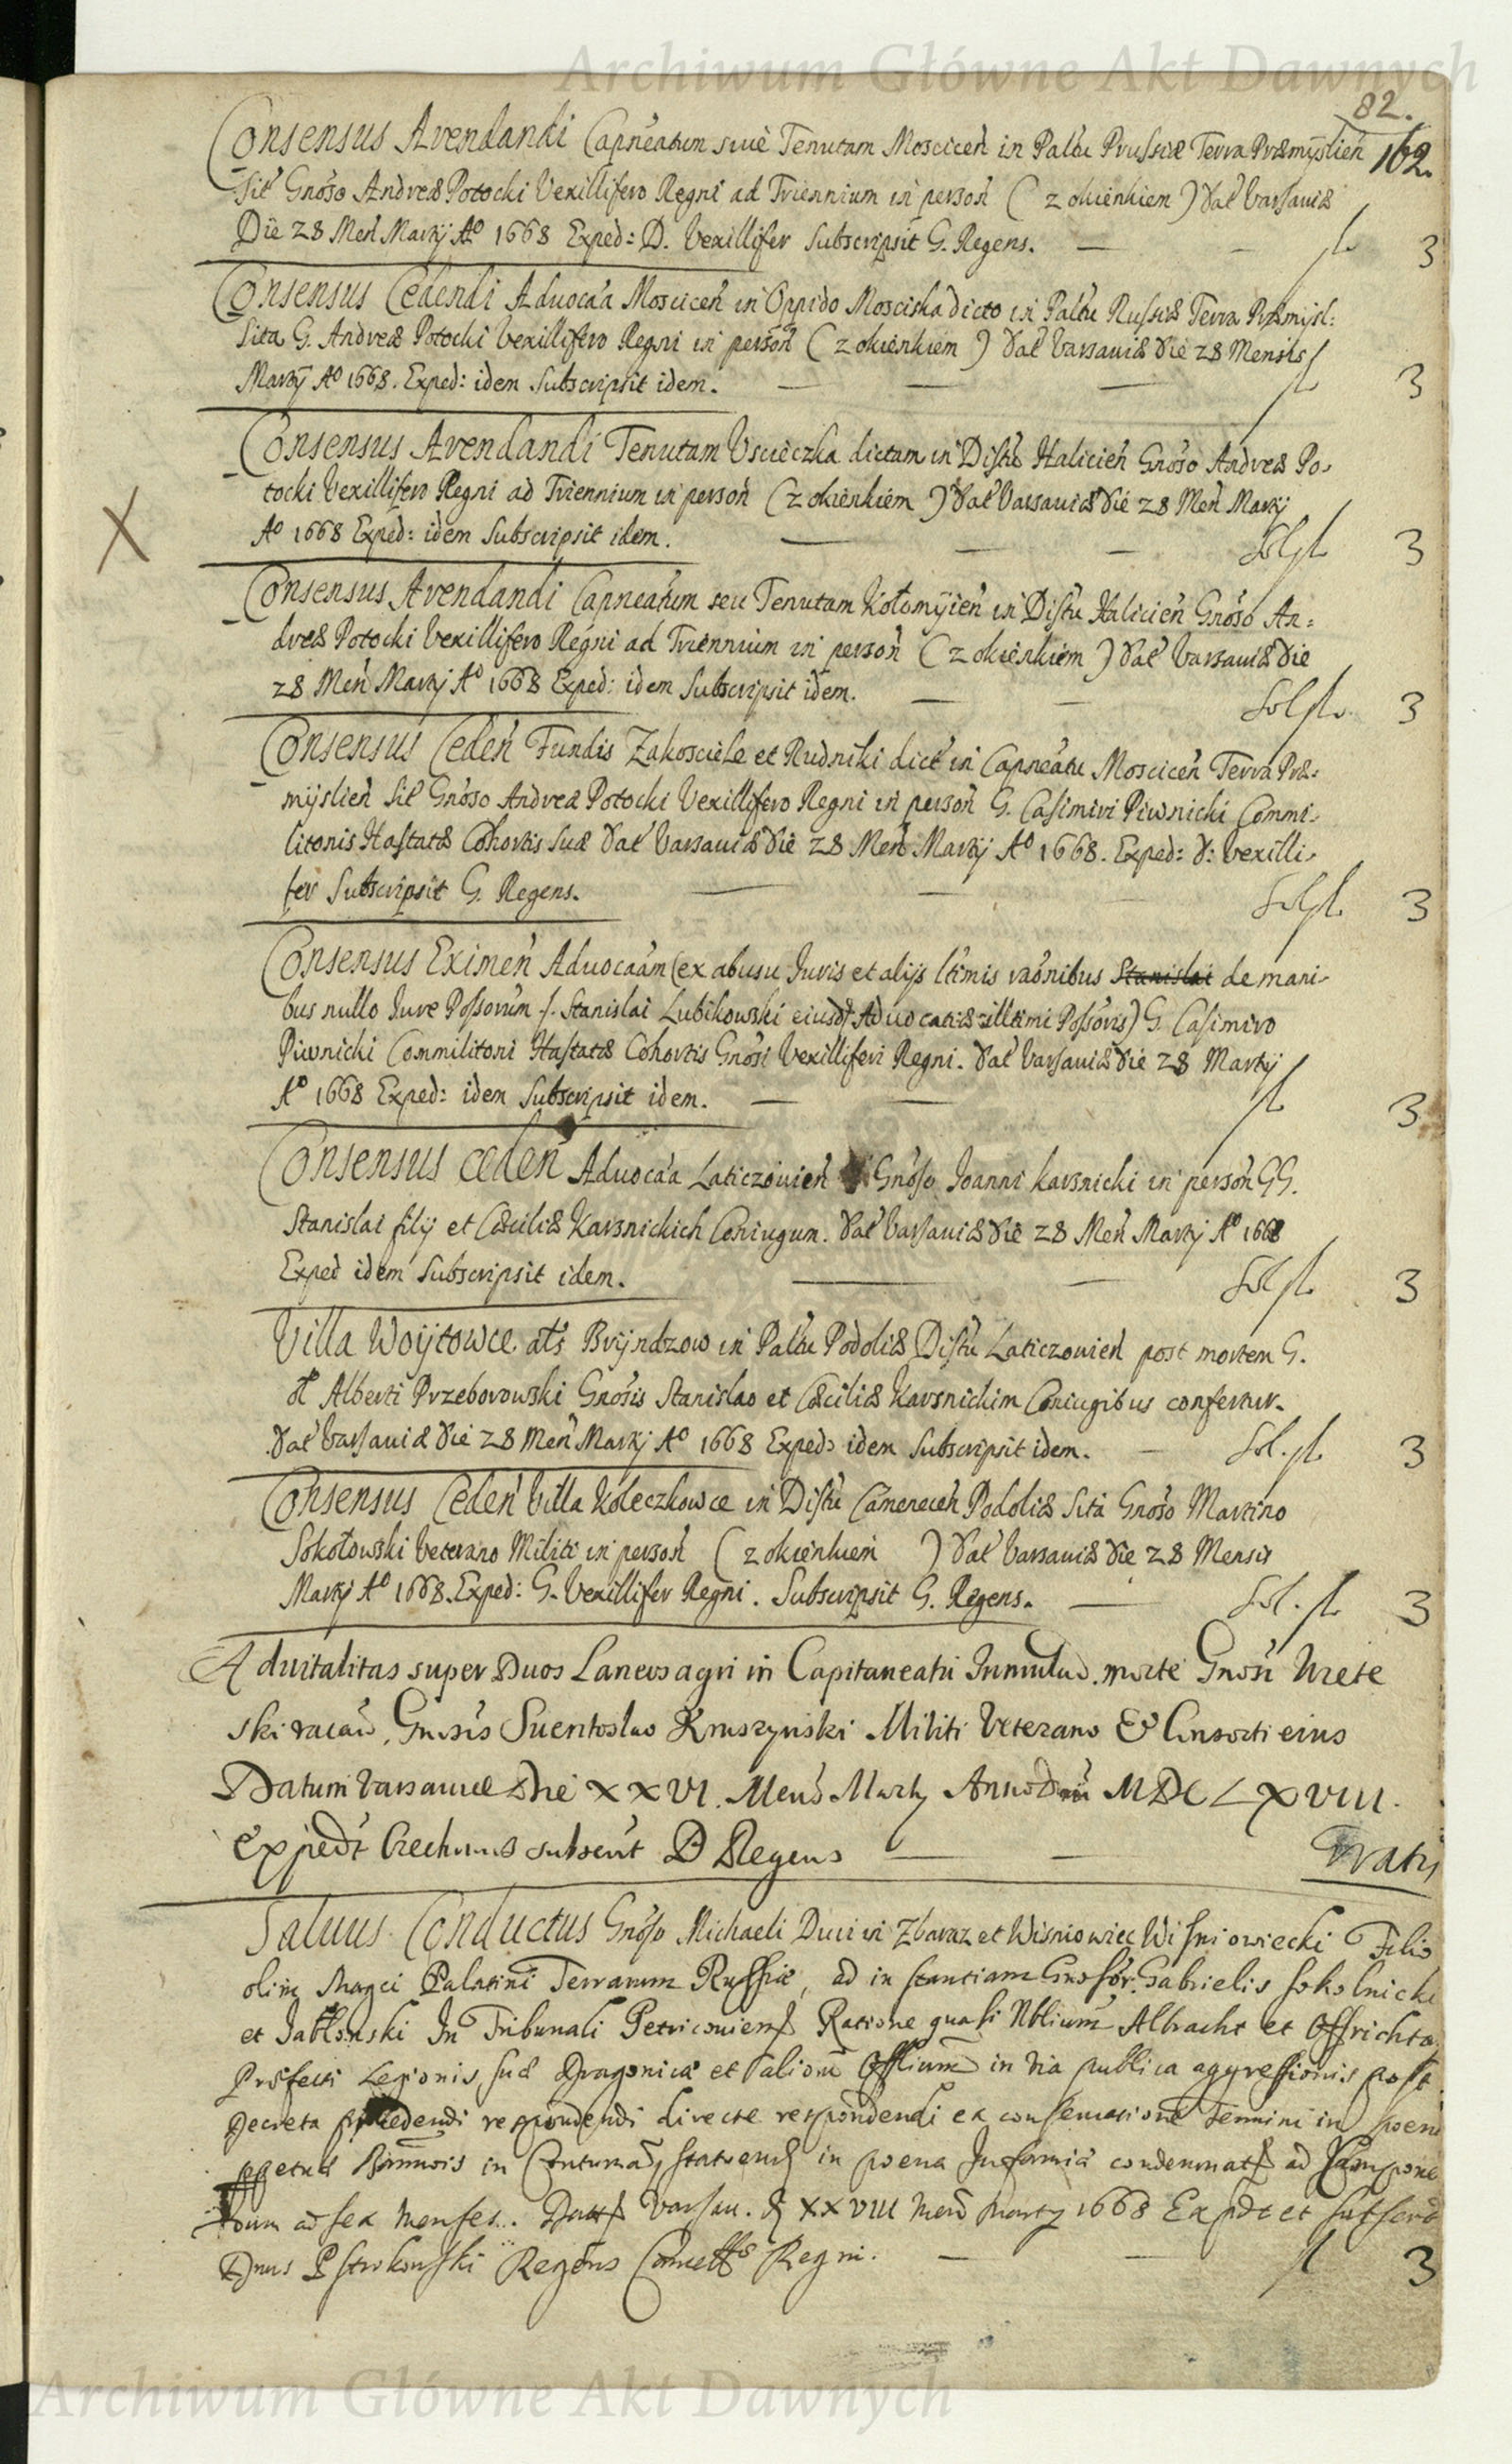 Archiwum Główne Akt Dawnych
82.
162.
Consensus Arendandi Capneatum siue Tenutam Mosciceń in Paltu Prussiæ Terra Præmyslień
Sit Gnoso Andreæ Potocki Vexillifero Regni ad Triennium in persoń ( z okienkiem ) Dat Varsauiæ
Die 28 Meń Martij Aº 1668 Exped: D. Vexillifer Subscripsit G. Regens. fl. 3
Consensus Cedendi Aduocaa Mosciceń in Oppido Mosciska dicto in Paltu Russiæ Terra Præmisl:
Sita G. Andreæ Potocki Vexillifero Regni in persoń ( z okienkiem ) Dat Varsauiæ Die 28 Mensis
Martij Aº 1668. Exped: idem Subscripsit idem. fl. 3
Consensus Arendandi Tenutam Uscieczka dictam in Distu Halicień Gnoso Andreæ Po-
tocki Vexillifero Regni ad Triennium in persoń ( z okienkiem ) Dat Varsauiæ Die 28 Meń Martij
X
Aº 1668 Exped: idem Subscripsit idem. Sol fl 3
Consensus Arendandi Capneatum seu Tenutam Kołomyień in Distu Halicień Gnoso An=
dreæ Potocki Vexillifero Regni ad Triennium in persoń ( z okienkiem ) Dat Varsauiæ Die
28 Meń Martij Aº 1668 Exped: idem Subscripsit idem. Sol fl. 3
Consensus Cedeń Fundis Zakosciele et Rudniki dict in Capneatu Mosciceń Terra Præ-
myslień Sit Gnoso Andreæ Potocki Vexillifero Regni in persoń G. Casimiri Piwnicki Commi-
litonis Hastatæ Cohortis Suæ Dat Varsauiæ Die 28 Meń Martij Aº 1668. Exped: D: Vexilli-
fer Subscripsit G. Regens. Sol fl. 3
Consensus Eximeń Aduocaam (ex abusu Iuris et alijs ltimis raonibus Stanislai de mani-
bus nullo Iure Possorum /. Stanislai Lubikowski eiusd Aduocatiæ illtimi Possoris) G. Casimiro
Piwnicki Commilitoni Hastatæ Cohortis Gnosi Vexilliferi Regni. Dat Varsauiæ Die 28 Martij
Aº 1668 Exped: idem Subscripsit idem. fl 3
Consensus cedeń Aduocaa Laticzowień Gnoso Joanni Karsnicki in persoń GG.
Stanislai filij et Cæciliæ Karsnickich Coniugum. Dat Varsauiæ Die 28 Meń Martij Aº 1668
Exped idem Subscripsit idem. Sol fl. 3
Villa Woijtowce als Bryndzow in Paltu Podoliæ Distu Laticzowień post mortem G.
ol Alberti Przeborowski Gnosis Stanislao et Cæciliæ Karsnickim Coniugibus confertur.
Dat Varsauiæ Die 28 Meń Martij Aº 1668 Exped: idem Subscripsit idem. Sol. fl. 3
Consensus Cedeń Villa Koleczkowce in Distu Cameneceń Podoliæ Sita Gnoso Martino
Sokołowski Veterano Militi in persoń ( z okienkień ) Dat Varsauiæ Die 28 Mensis
Martij Aº 1668. Exped: G. Vexillifer Regni. Subscripsit G. Regens. Sol. fl. 3
Aduitalitas super Duos Laneos agri in Capitaneatu morte Gnosi
ski Gnosis Suentoslao Kruszynski Militi Veterano & Consorti eius
Datum Varsauiæ Die XXVI. Mens Martij Anno Dni MDCLXVIII.
Expedt subscrit D Regens Gratis
Saluus Conductus Gnoso Michaeli Duci in Zbaraz et Wisniowiec Wisniowiecki Filio
olim Magci Palatini Terrarum Russiæ, ad instantiam Gnosor. Gabrielis Sokolnicki
et Jabłonski In Tribunali Petricouiens Ratione quasi Nblium Albracht et
Præfecti Legionis suæ Dragonicæ et aliorum in via publica aggressionis post
Decreta respondendi directe respondendi ex conseruatione Termini in poena
ppetuæ Bannitionis in in poena Infamiæ condemnats ad
dum ad sex Menses. Datts Varsau. D XXVIII Mens Marty 1668 Expdt et subscrt
Dnus Pstrokonski Regens Regni. fl 3
Archiwum Główne Akt Dawnych